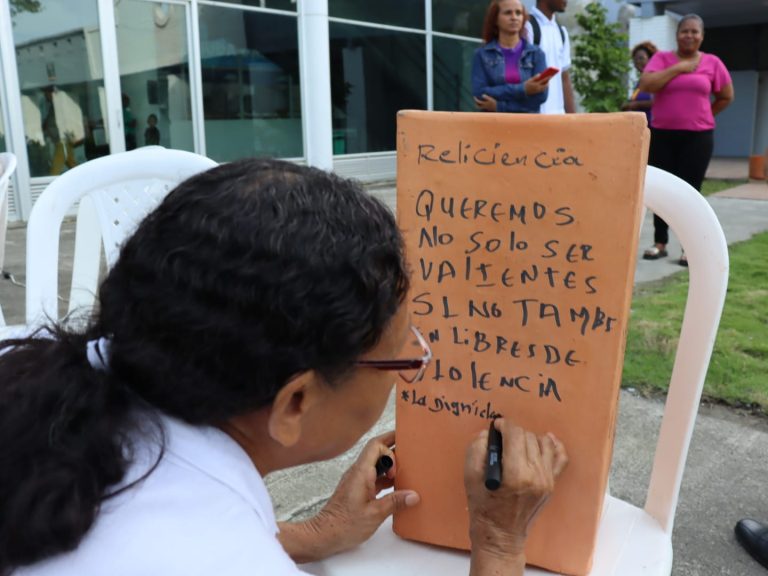 Reliciencia
QUEREMOS
No solo SER
VALIENTES
SI NO TAMBE
EN LIBRES DE
VIOLENCIA
*La Dignida